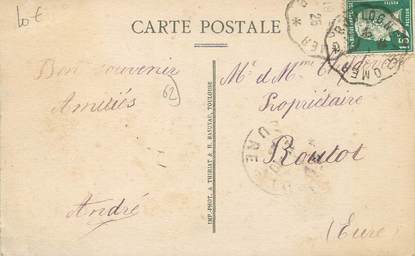 10€
CARTE POSTALE
Bon souvenir
Amitiés
André
62
IMP.-PHOT. A. THIRIAT & B. BASUYAU, TOULOUSE
Mr & Mme
Propriétaire
Routot
(Eure)
EURE